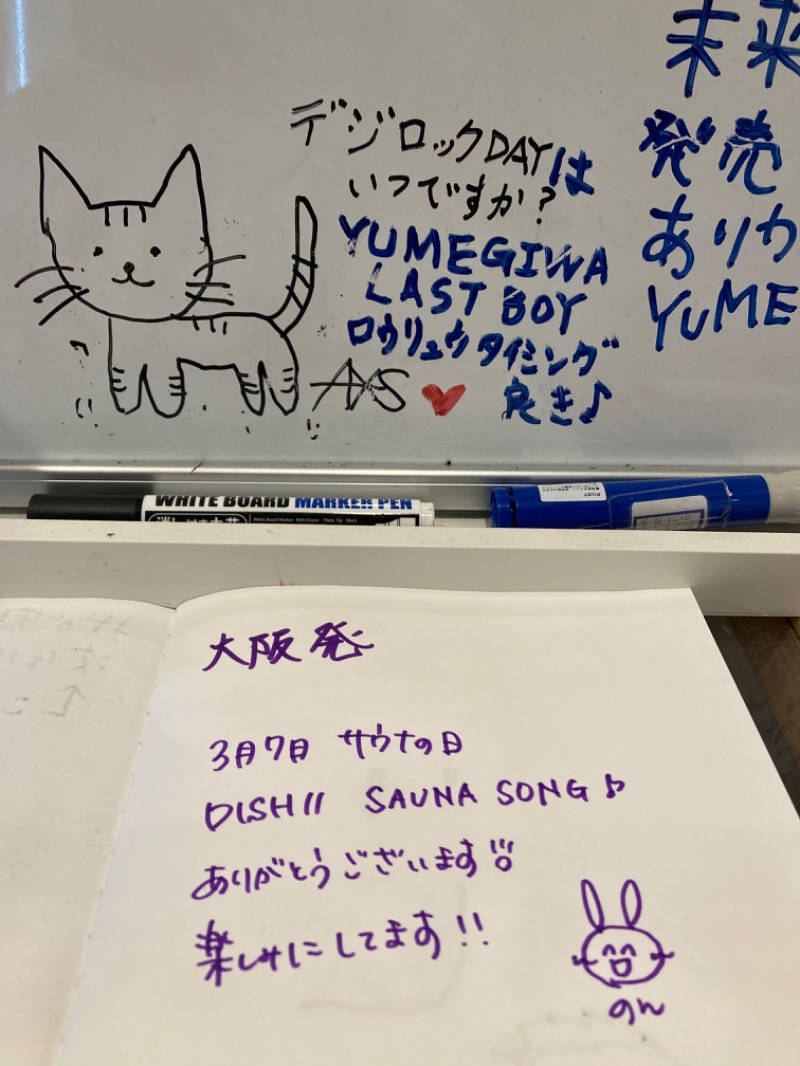 デジロックDAYは
いつですか?
YUMEGIWA
LAST BOY
ロウリュウタイミング
良き♪
AXS
未来
発売
ありが
YUME
WHITE BOARD MARKER PEN
PILOT
大阪発
3月7日 サウナの日
DISH// SAUNA SONG♪
ありがとうございます!!
楽しみにしてます!!
のん